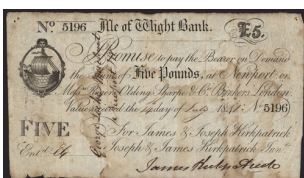 Nº 5196 Isle of Wight Bank. £5.
I Promise to pay the Bearer on Demand
the Sum of Five Pounds, at Newport or
Messrs Rogers, Olding, Sharpe & Co. Bankers London
Value received the day of July 1841 Nº 5196
For James & Joseph Kirkpatrick
FIVE
Joseph & James Kirkpatrick Junr.
Entd
James Kirkpatrick